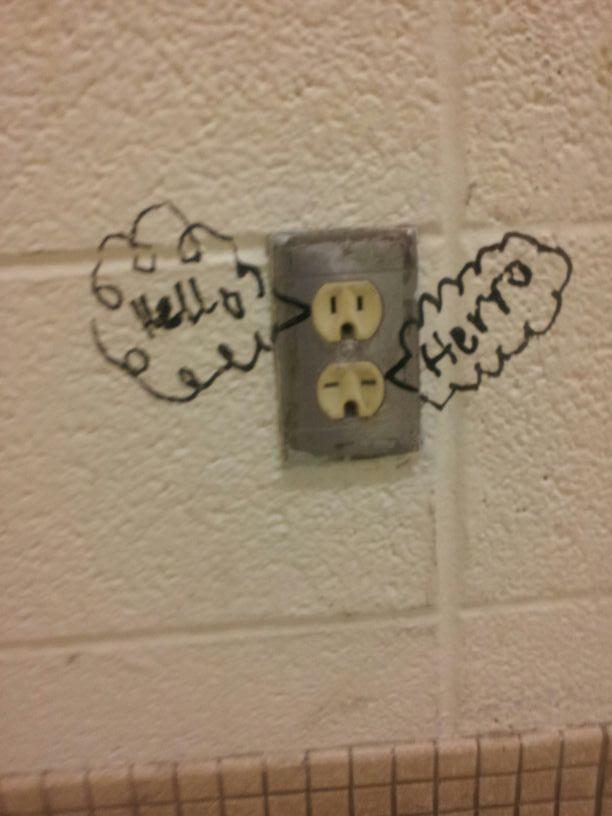 Hello
Herro